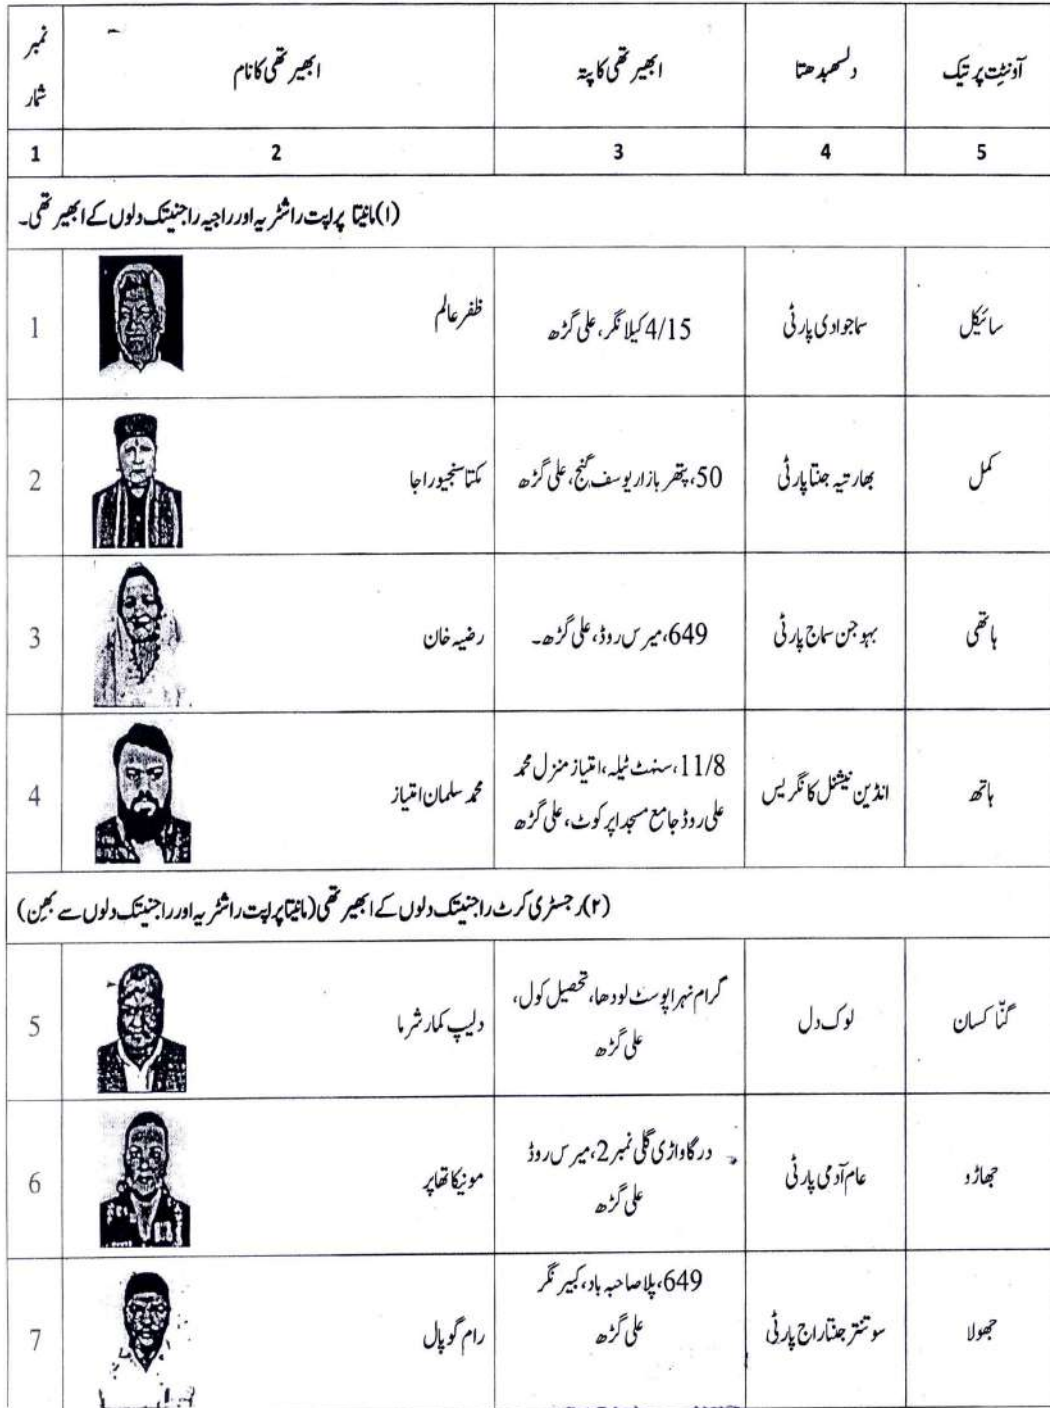 نمبر شمار	ابھیر تھی کا نام	ابھیر تھی کا پتہ	دلسمبدھتا	آونٹِت پر تیک
1	2	3	4	5
(۱) مانیتا پراپت راشٹریہ اور راجیہ راجنیتک دلوں کے ابھیر تھی۔
1	ظفر عالم	4/15 کیلا نگر، علی گڑھ	سماجوادی پارٹی	سائیکل
2	مکتا سنجیو راجا	50، پتھر بازار یوسف گنج، علی گڑھ	بھارتیہ جنتا پارٹی	کمل
3	رضیہ خان	649، میرس روڈ، علی گڑھ۔	بہوجن سماج پارٹی	ہاتھی
4	محمد سلمان امتیاز	11/8، سنہٹ ٹیلہ، امتیاز منزل محمد
علی روڈ جامع مسجد اپر کوٹ، علی گڑھ	انڈین نیشنل کانگریس	ہاتھ
(۲) رجسٹری کرٹ راجنیتک دلوں کے ابھیر تھی (مانیتا پراپت راشٹریہ اور راجنیتک دلوں سے بھِن)
5	دلیپ کمار شرما	گرام نہرا پوسٹ لودھا، تحصیل کول،
علی گڑھ	لوک دل	گنّا کسان
6	مونیکا تھاپر	درگا واڑی گلی نمبر 2، میرس روڈ
علی گڑھ	عام آدمی پارٹی	جھاڑو
7	رام گوپال	649، پلا صاحبہ باد، کبیر نگر
علی گڑھ	سوتنتر جنتا راج پارٹی	جھولا